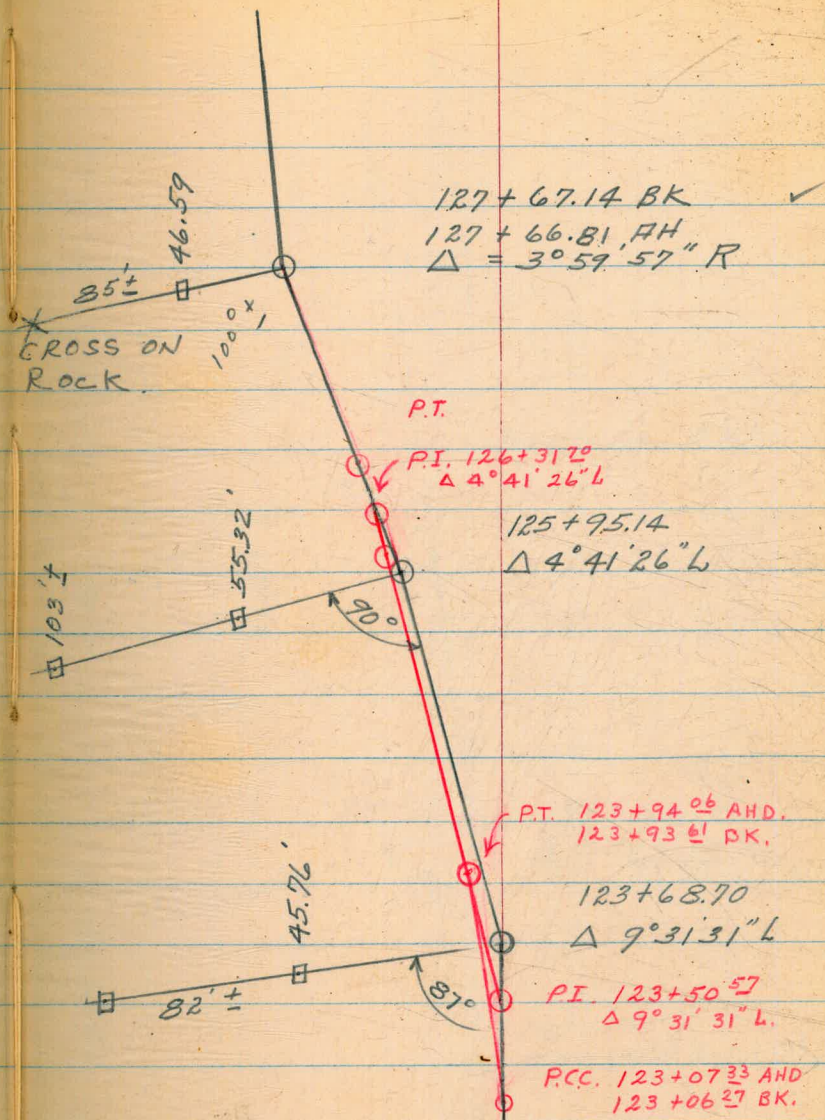 127 + 67.14 BK
127 + 66.81 AH
Δ = 3° 59' 57" R
46.59
85'±
CROSS ON
ROCK.
P.T.
P.I. 126+31 70
Δ 4° 41' 26" L
125 + 95.14
Δ 4° 41' 26" L
55.32'
103'±
90°
P.T. 123+94 06 AHD.
123+93 61 BK.
123+68.70
Δ 9° 31' 31" L
45.76'
82'±
87°
P.I. 123+50 57
Δ 9° 31' 31" L.
P.C.C. 123+07 33 AHD
123+06 27 BK.